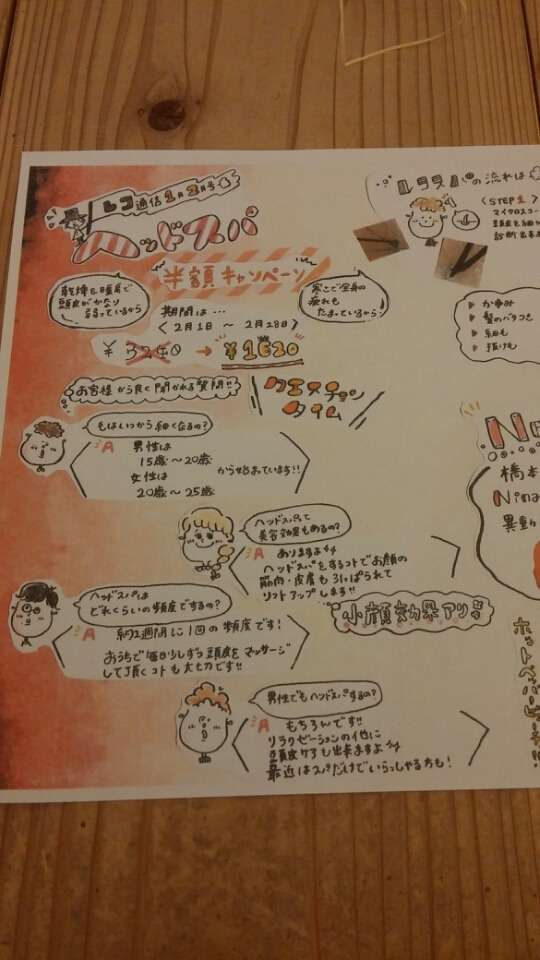 レコ通信1月2月号
ヘッドスパ
半額キャンペーン
乾燥&暖房で
頭皮がかなり
弱っているから
期間は…
〈2月1日 〜 2月28日〉
寒さで全身の
疲れも
たまっているから
¥3240 → ¥1620
お客様から良く聞かれる質問!!
クエスチョン
タイム
もはいつから細くなるの?
A 男性は
15歳〜20歳
女性は
20歳〜25歳
から始まっています!!
ヘッドスパって
美容効果もあるの?
A ありますよ
ヘッドスパをするコトでお顔の
筋肉・皮膚も引っぱられて
リフトアップします!!
小顔効果アリ
ヘッドスパは
どれくらいの頻度でするの?
A 約2週間に1回の頻度です!
おうちで毎日少しずつ頭皮をマッサージ
して頂くコトも大切です!!
男性でもヘッドスパするの?
A もちろんです!!
リラクゼーションの他に
頭皮ケアも出来ますよ
最近はスパだけでいらっしゃる方も!
の流れは
〈STEP1〉
マイクロスコー
頭皮を細
診断
▶ かゆみ
▶ 髪のパタつき
▶ 細毛
▶ 抜け毛
Ni
橋本
Nina
異動
ホットペッパービューティー